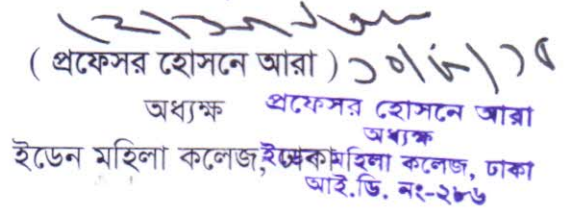 ( প্রফেসর হোসনে আরা )
অধ্যক্ষ
ইডেন মহিলা কলেজ,
প্রফেসর হোসনে আরা
অধ্যক্ষ
ইডেন মহিলা কলেজ, ঢাকা
আই.ডি. নং-২৮৬